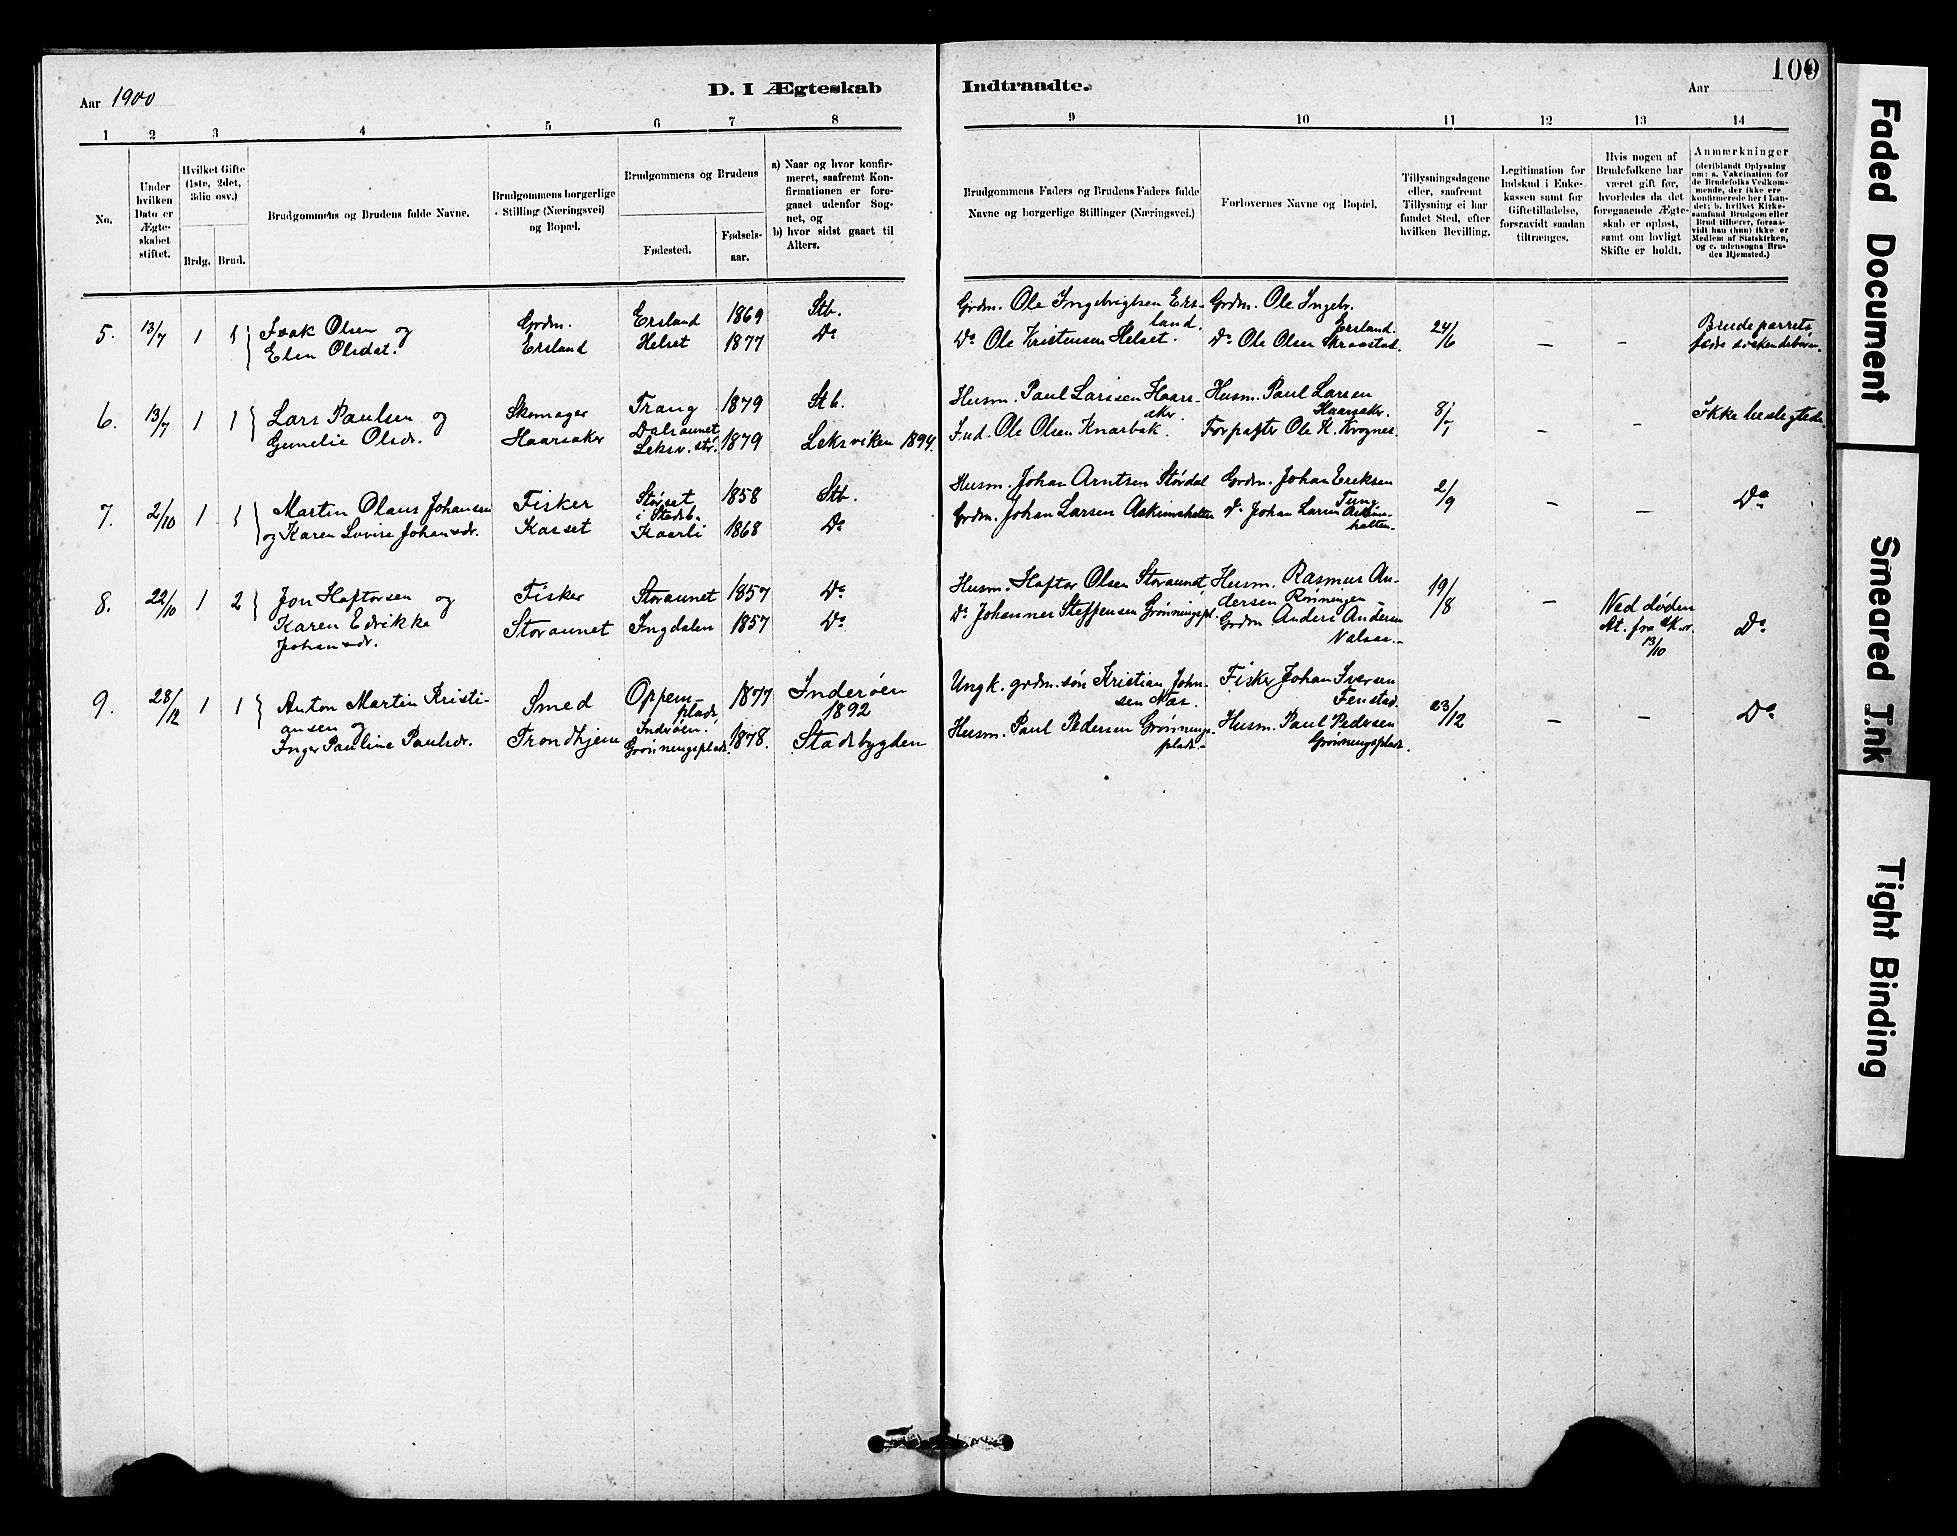 Aar 1900
D. I Ægteskab Indtraadte.
Aar
109
1 2 3 4 5 6 7 8 9 10 11 12 13 14
No.
Under hvilken Dato er Ægteskabet stiftet.
Hvilket Gifte (1ste, 2det, 3die osv.)
Brdg. Brud.
Brudgommens og Brudens fulde Navne.
Brudgommens borgerlige Stilling (Næringsvei) og Bopæl.
Brudgommens og Brudens
Fødested.
Fødselsaar.
a) Naar og hvor konfirmeret, saafremt Konfirmationen er foregaaet udenfor Sognet, og
b) hvor sidst gaaet til Alters.
Brudgommens Faders og Brudens Faders fulde Navne og borgerlige Stillinger (Næringsvei.)
Forlovernes Navne og Bopæl.
Tillysningsdagene eller, saafremt Tillysning ei har fundet Sted, efter hvilken Bevilling.
Legitimation for Indskud i Enkekassen samt for Giftetilladelse, forsaavidt saadan tiltrænges.
Hvis nogen af Brudefolkene har været gift før, hvorledes da det foregaaende Ægteskab er opløst, samt om lovligt Skifte er holdt.
Anmærkninger
(deriblandt Oplysning om: a. Vakcination for de Brudefolks Vedkommende, der ikke ere konfirmerede her i Landet; b. hvilket Kirkesamfund Brudgom eller Brud tilhører, forsaavidt han (hun) ikke er Medlem af Statskirken, og c. udensogns Brudes Hjemsted.)
5. 13/7 1 1 Isak Olsen og Grdm. Ersland 1869 Stb. Grdm. Ole Ingebrigtsen Ersland. Grdm. Ole Ingebr. Ersland. 24/6 — — Brudeparrets fædre søskendebørn.
Elen Olsdat. Ersland Helset 1877 Do Do Ole Kristensen Helset. Do Ole Olsen Skraastad.
6. 13/7 1 1 Lars Paulsen og Skomager Trang 1879 Stb. Husm. Paul Larssen Haarsaker Husm. Paul Larsen Haarsaker. 8/1 — — Ikke beslegtede.
Gunelie Olsdr. Haarsaker Dalsaunet Leksv. str. 1879 Leksviken 1894. Ind. Ole Olsen Knarbak. Forpagter Ole K. Krognes.
7. 2/10 1 1 Martin Olaus Johansen Fisker Størset i Stadsb. 1858 Stb. Husm. Johan Arntsen Størdal Grdm. Johan Eriksen Tung 2/9 — — Do
og Karen Lovise Johansdr. Kasset Kaarli 1868 Do Grdm. Johan Larsen Askimshalten Do Johan Larsen Askimhalten.
8. 22/10 1 2 Jon Haftorsen og Fisker Storaunet 1857 Do Husm. Haftor Olsen Storaunet, Husm. Rasmus Andersen Rønningen 19/8 — Ved døden At. fra Skr. 13/10 Do
Karen Edvikke Johansdr. Storaunet Ingdalen 1857 Do Do Johannes Steffensen Grønningspl. Grdm Anders Andersen Valsaa.
9. 28/12 1 1 Anton Martin Kristiansen og Smed Oppemplads Inderøen. 1877 Inderøen 1892 Ungk. grdm. søn Kristian Johnsen Næs. Fisker Johan Iversen Fenstad. 23/12 — — Do
Inger Pauline Paulsdr. Trondhjem Grønningsplads. 1878. Stadsbygden Husm. Paul Pedersen Grønningsplads. Husm. Paul Pedersen Grønningsplads.
Faded Document
Smeared Ink
Tight Binding